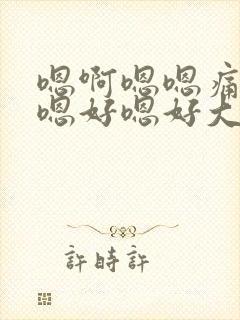 嗯啊嗯嗯痛
嗯好嗯好大
許時許